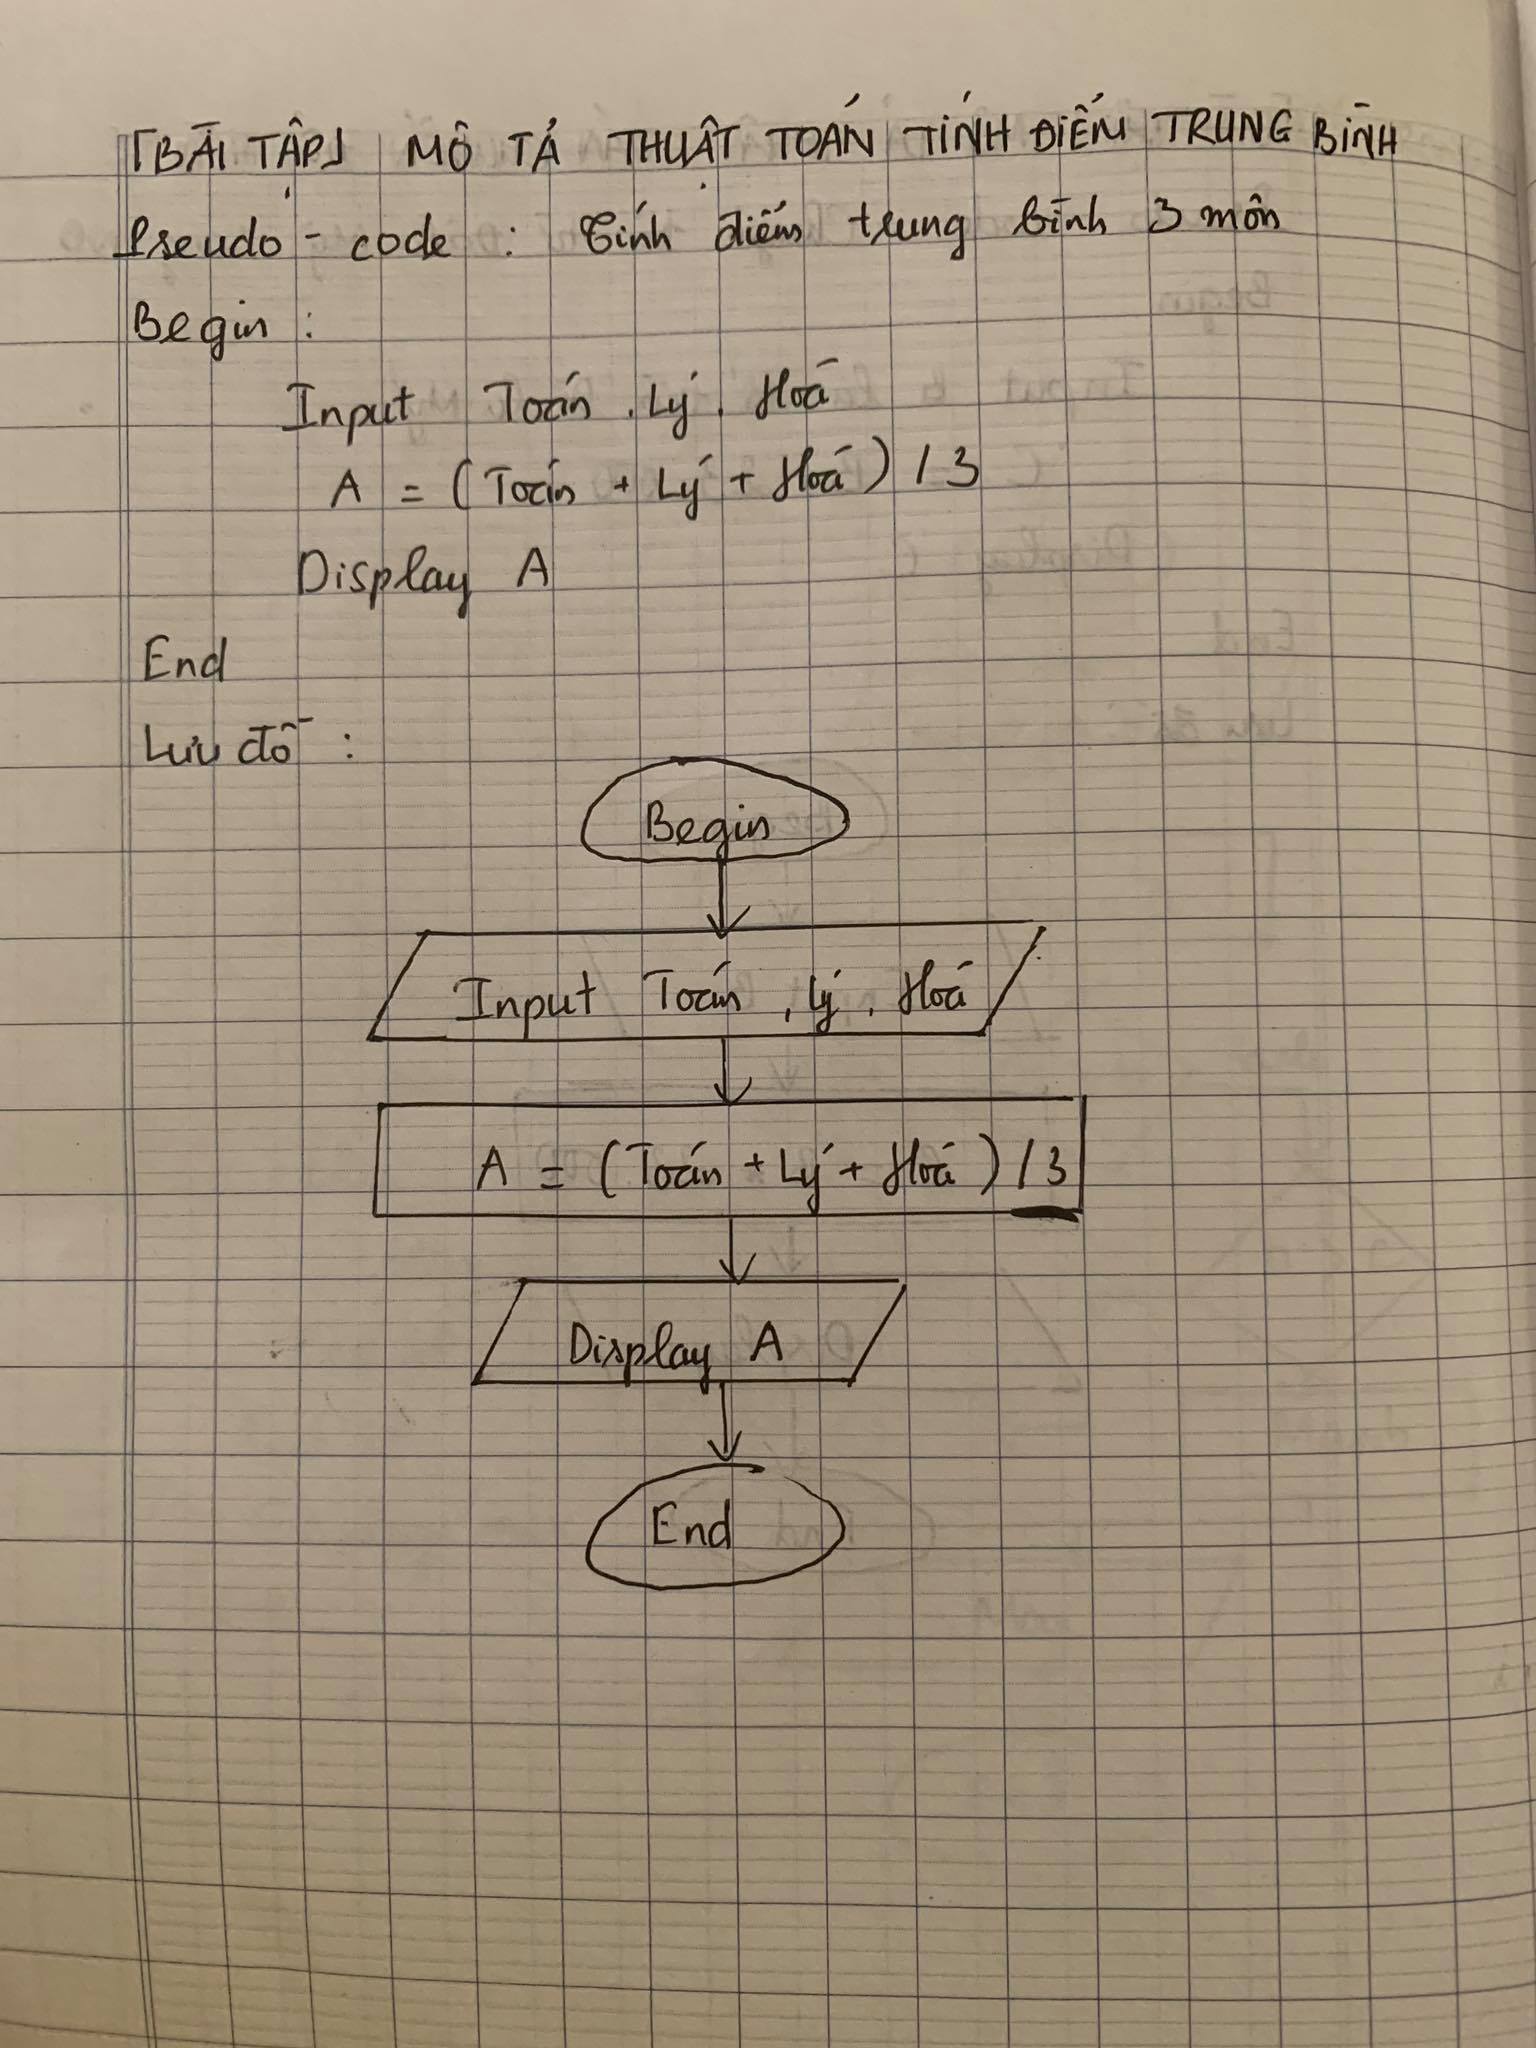 [BÀI TẬP] MÔ TẢ THUẬT TOÁN TÍNH ĐIỂM TRUNG BÌNH
Pseudo - code : Tính điểm trung bình 3 môn
Begin :
Input Toán, Lý, Hoá
A = (Toán + Lý + Hoá) / 3
Display A
End
Lưu đồ :
Begin
Input Toán, Lý, Hoá
A = (Toán + Lý + Hoá) / 3
Display A
End